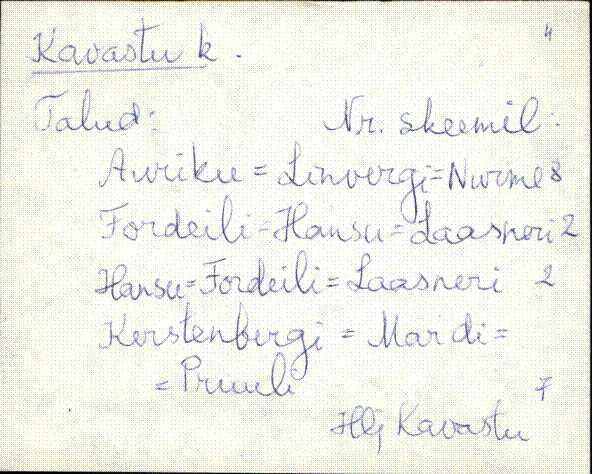 4
Kavastu k.
Talud: Nr. skeemil:
Auriku = Linvergi = Nurme 8
Fordeili = Hansu = Laasneri 2
Hansu = Fordeili = Laasneri 2
Kerstenbergi = Mardi =
= Pruuli 7
Hlj Kavastu